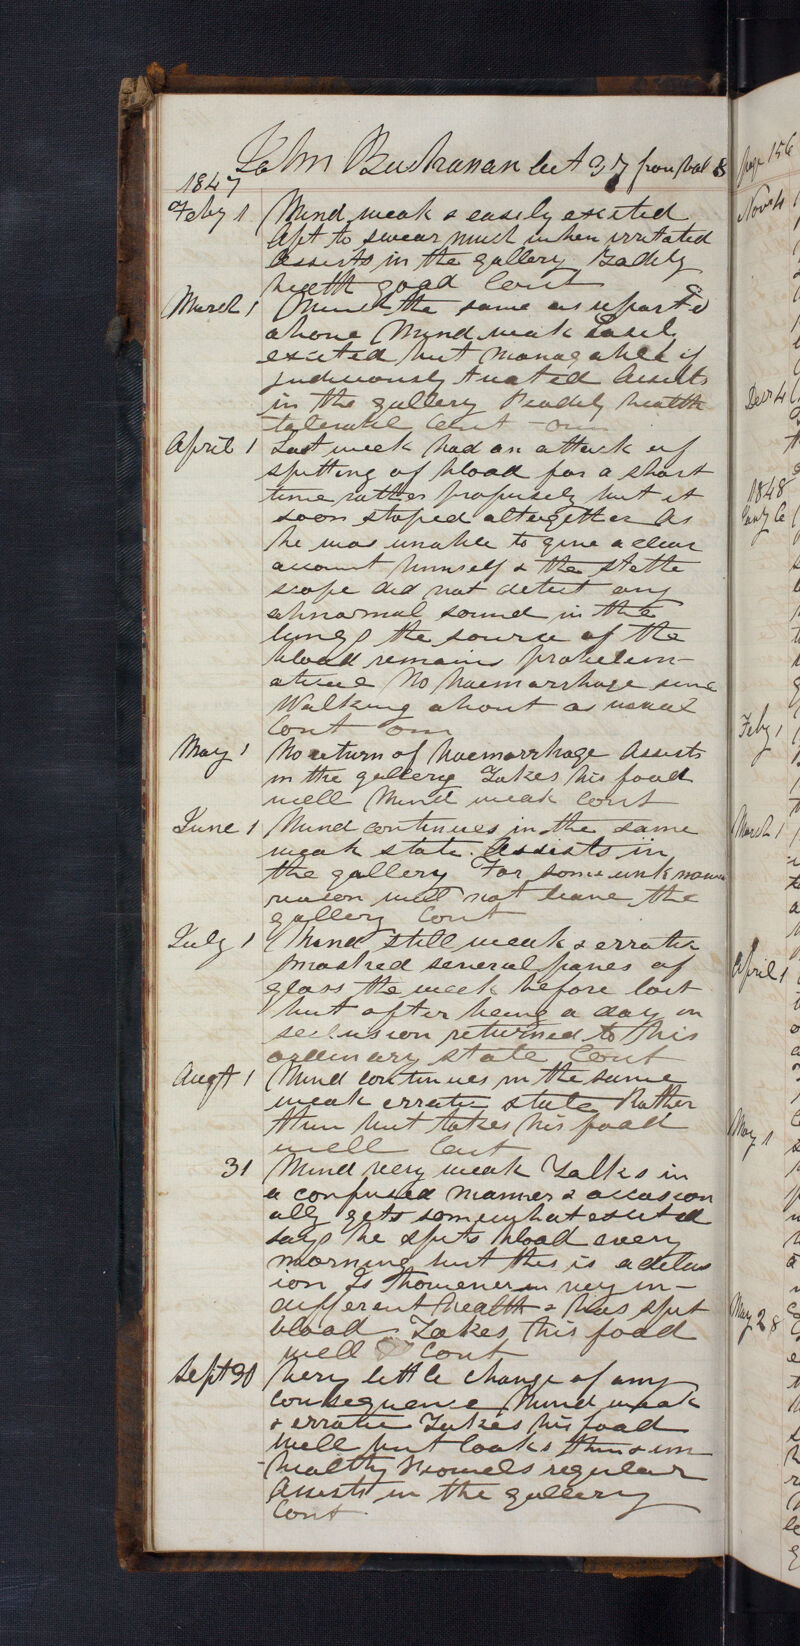 John Buchanan aet 37 from vol 8
1847
Feby 1 Mind weak & easily excited
Apt to swear much when irritated
Assists in the gallery Bodily
health good Cont
March 1 Much the same as reported
above Mind weak Easily
excited but managable if
judiciously treated Assists
in the gallery Bodily health
tolerable Cont - om
April 1 Last week had an attack of
spitting of blood for a short
time rather profusely but it
soon stoped altogether As
he was unable to give a clear
account himself & the stetho
scope did not detect any
abnormal sound in the
lungs the source of the
blood remains problem-
atical No haemorrhage since
Walking about as usual
Cont om
May 1 No return of haemorrhage Assists
in the gallery Takes his food
well Mind weak Cont
June 1 Mind continues in the same
weak state. Assists in
the gallery For some unknown
reason will not leave the
gallery Cont
July 1 Mind still weak & erratic
smashed several panes of
glass the week before last
but after being a day in
seclusion returned to his
ordinary state Cont
Augt 1 Mind continues in the same
weak erratic state Rather
thin but takes his food
well Cont
31 Mind very weak Talks in
a confused manner & occasion
ally gets somewhat excited
says he spits blood every
morning but this is a delus
ion Is however in very in-
different health & has spit
blood. Takes his food
well Cont
Sept 30 Very little change of any
consequence Mind weak
& erratic Takes his food
well but looks thin & un
-healthy Bowels regular
Assists in the gallery
Cont
page 156
Novr 4
Decr 4
1848
Jany 6
Feby 1
March 1
April 1
May 1
May 28